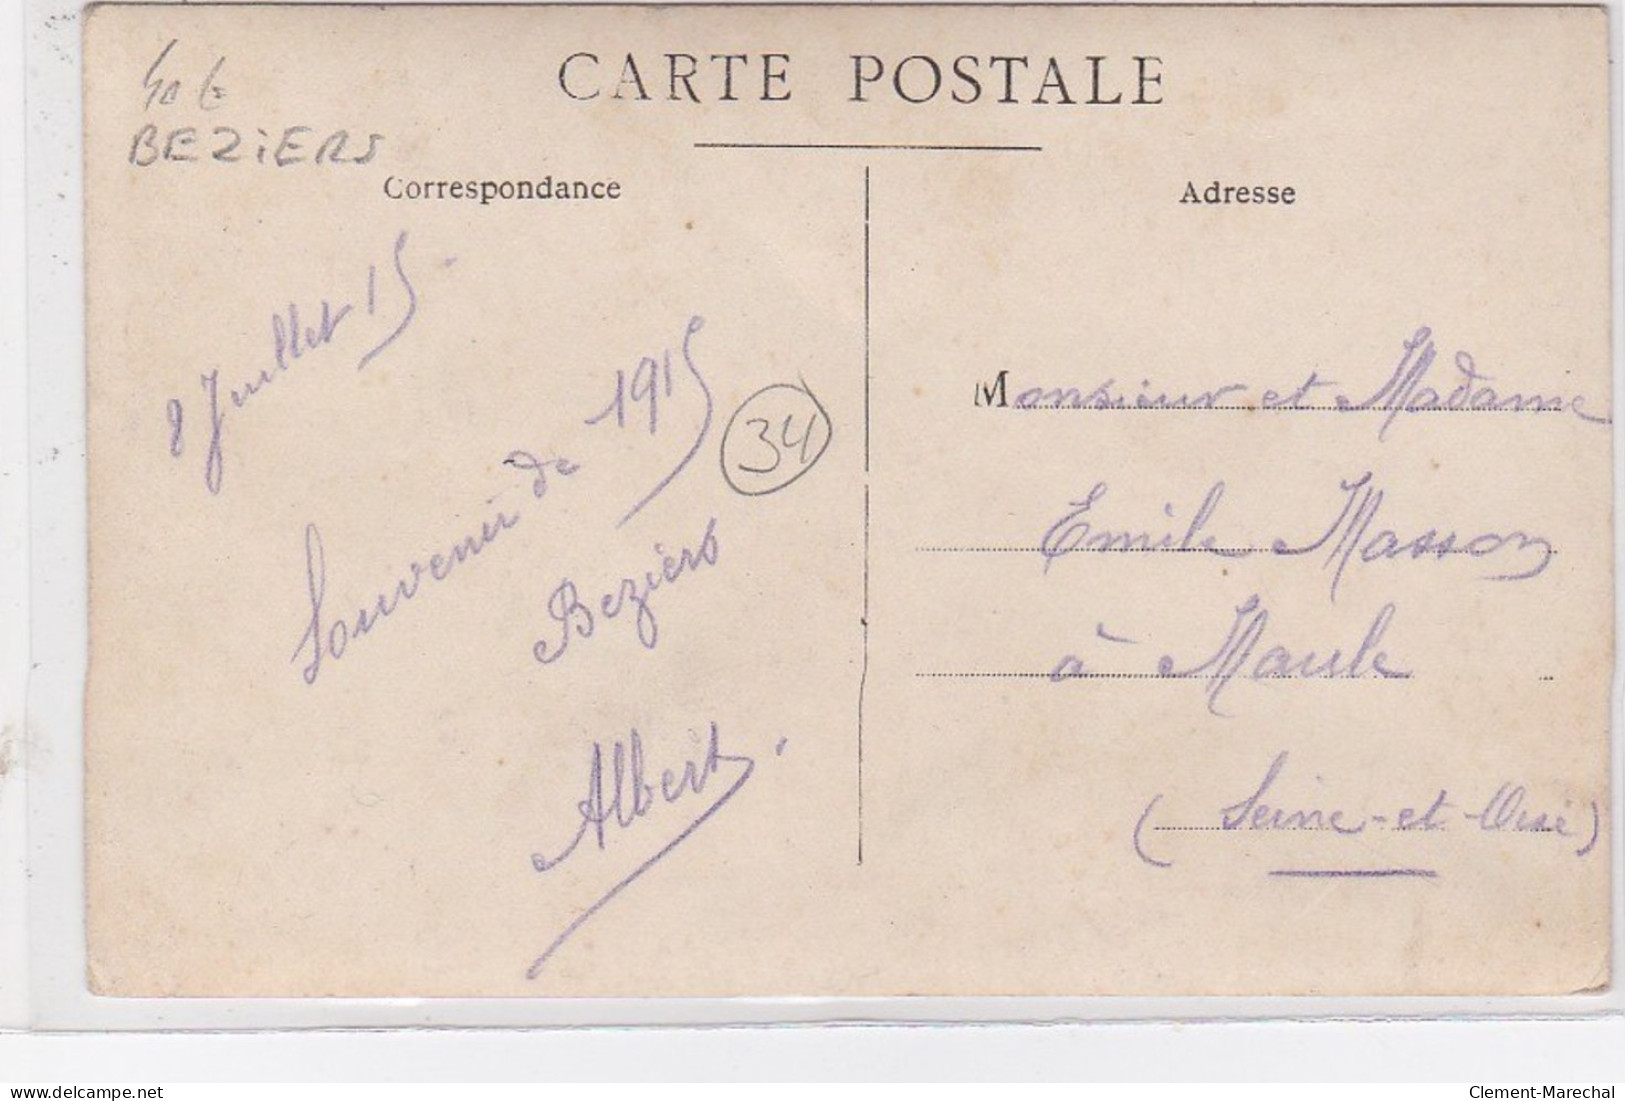 CARTE POSTALE
40 €
BEZIERS
Correspondance
8 Juillet 15.
Souvenir de 1915
Beziers
Albert.
34
Adresse
Monsieur et Madame
Emile Masson
à Maule
(Seine-et-Oise)
delcampe.net
Clement-Marechal